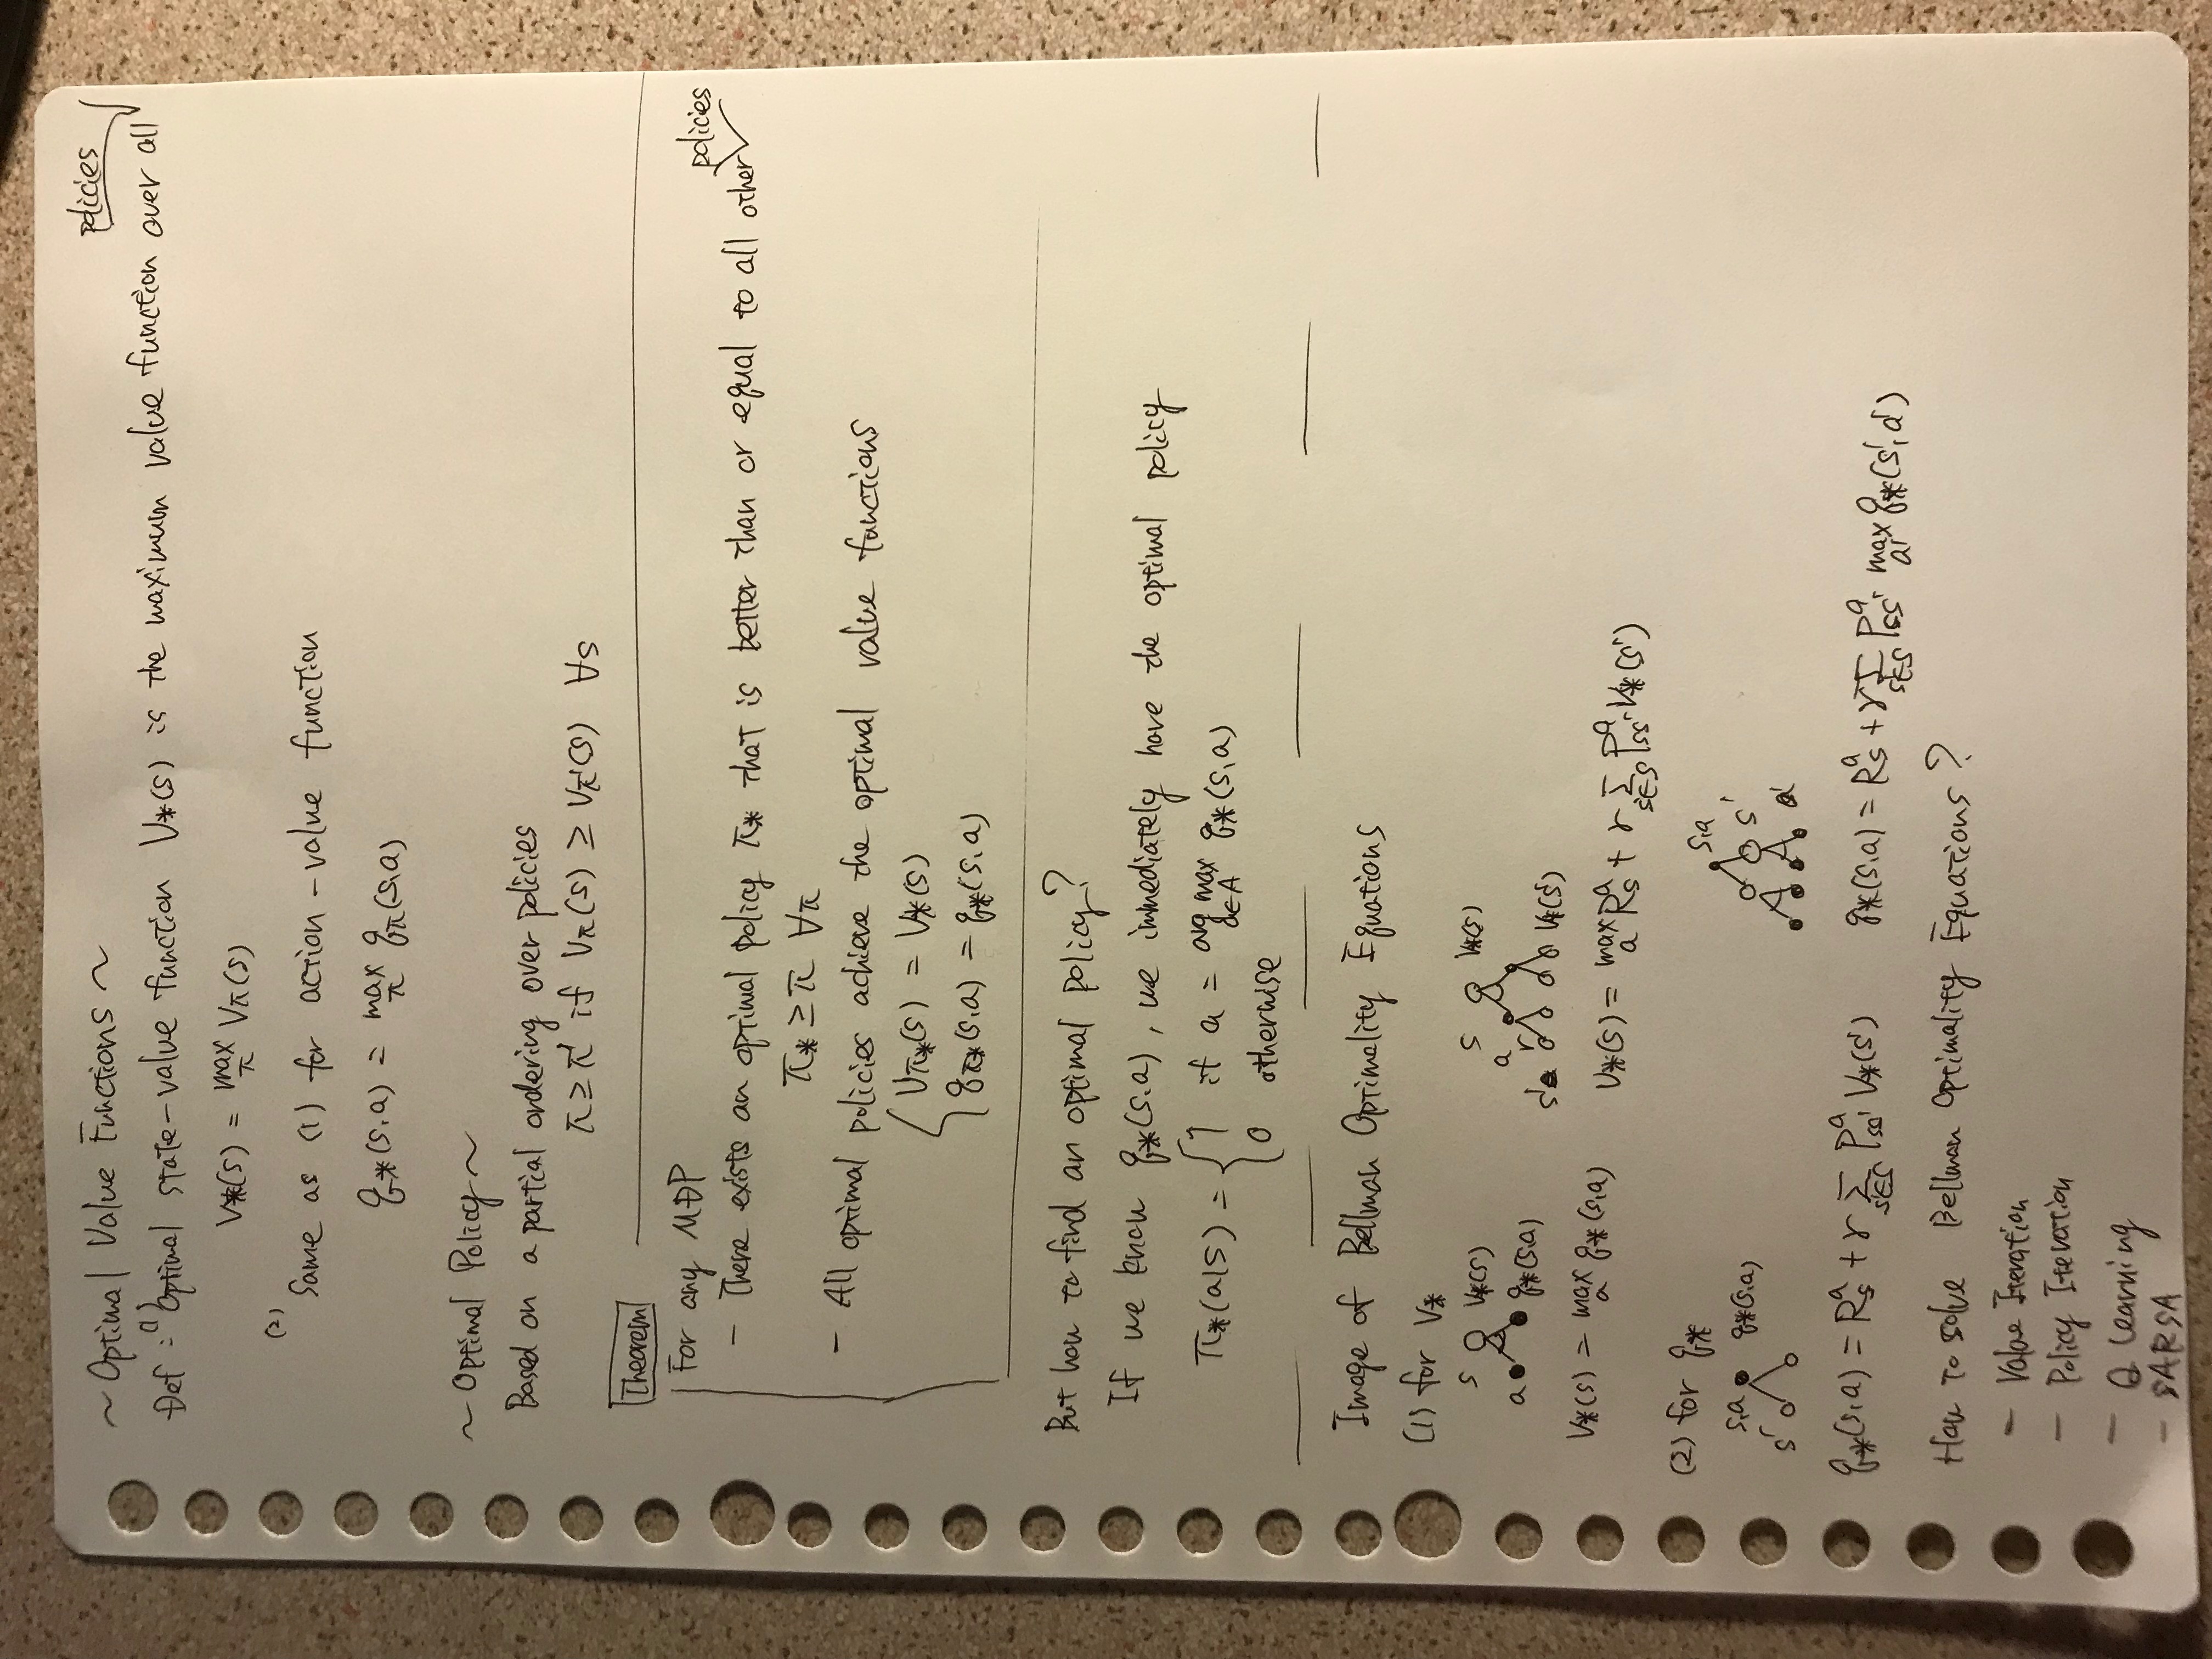 ~ Optimal Value Functions ~
policies
Def : (1) Optimal state-value function V*(s) is the maximum value function over all
V*(s) = max_π Vπ(s)
(2)
Same as (1) for action-value function
q*(s,a) = max_π qπ(s,a)
~ Optimal Policy ~
Based on a partial ordering over policies
π ≥ π' if Vπ(s) ≥ Vπ'(s) ∀s
Theorem
For any MDP
policies
- There exists an optimal policy π* that is better than or equal to all other
π* ≥ π ∀π
- All optimal policies achieve the optimal value functions
{ Vπ*(s) = V*(s)
qπ*(s,a) = q*(s,a)
But how to find an optimal policy?
If we know q*(s,a), we immediately have the optimal policy
π*(a|s) = { 1 if a = arg max_{a∈A} q*(s,a)
0 otherwise
Image of Bellman Optimality Equations
(1) for V*
s V*(s) s V*(s)
a q*(s,a) a
r
s' V*(s')
V*(s) = max_a q*(s,a) V*(s) = max_a R_s^a + γ Σ_{s'∈S} P_ss'^a V*(s')
(2) for q*
s,a q*(s,a) s,a
s' s'
a'
q*(s,a) = R_s^a + γ Σ_{s'∈S} P_ss'^a V*(s') q*(s,a) = R_s^a + γ Σ_{s'∈S} P_ss'^a max_a' q*(s',a')
How to solve Bellman Optimality Equations?
- Value Iteration
- Policy Iteration
- Q Learning
- SARSA